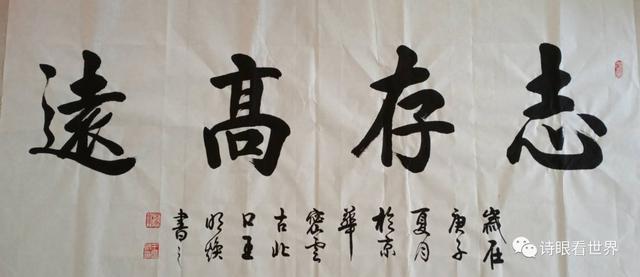 志存高遠
歲在
庚子
夏月
於京
華
密雲
古北
口王
明煥
書之
诗眼看世界